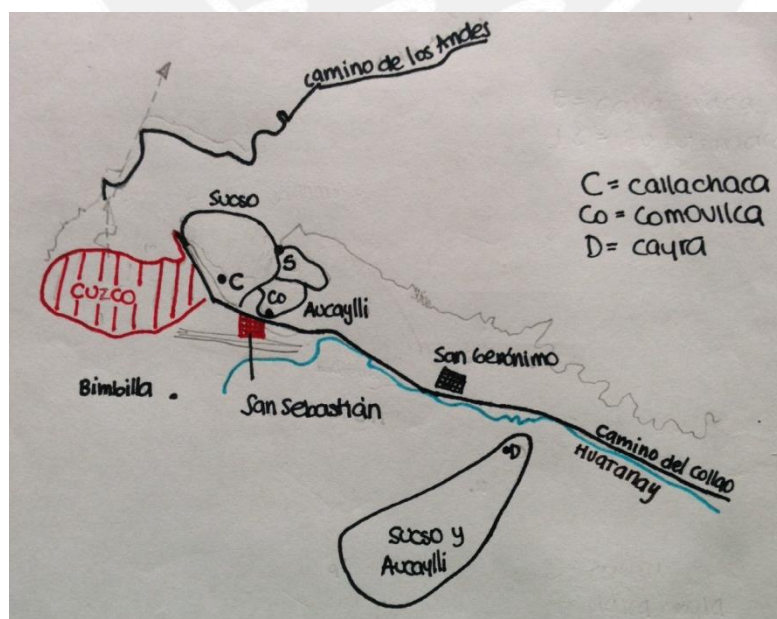 camino de los Andes
C = callachaca
Co = comovilca
D = cayra
Sucso
S
C
CUZCO
Co
Aucaylli
San Gerónimo
Bimbilla
San Sebastián
camino del collao
HUATANAY
D
Sucso y
Aucaylli